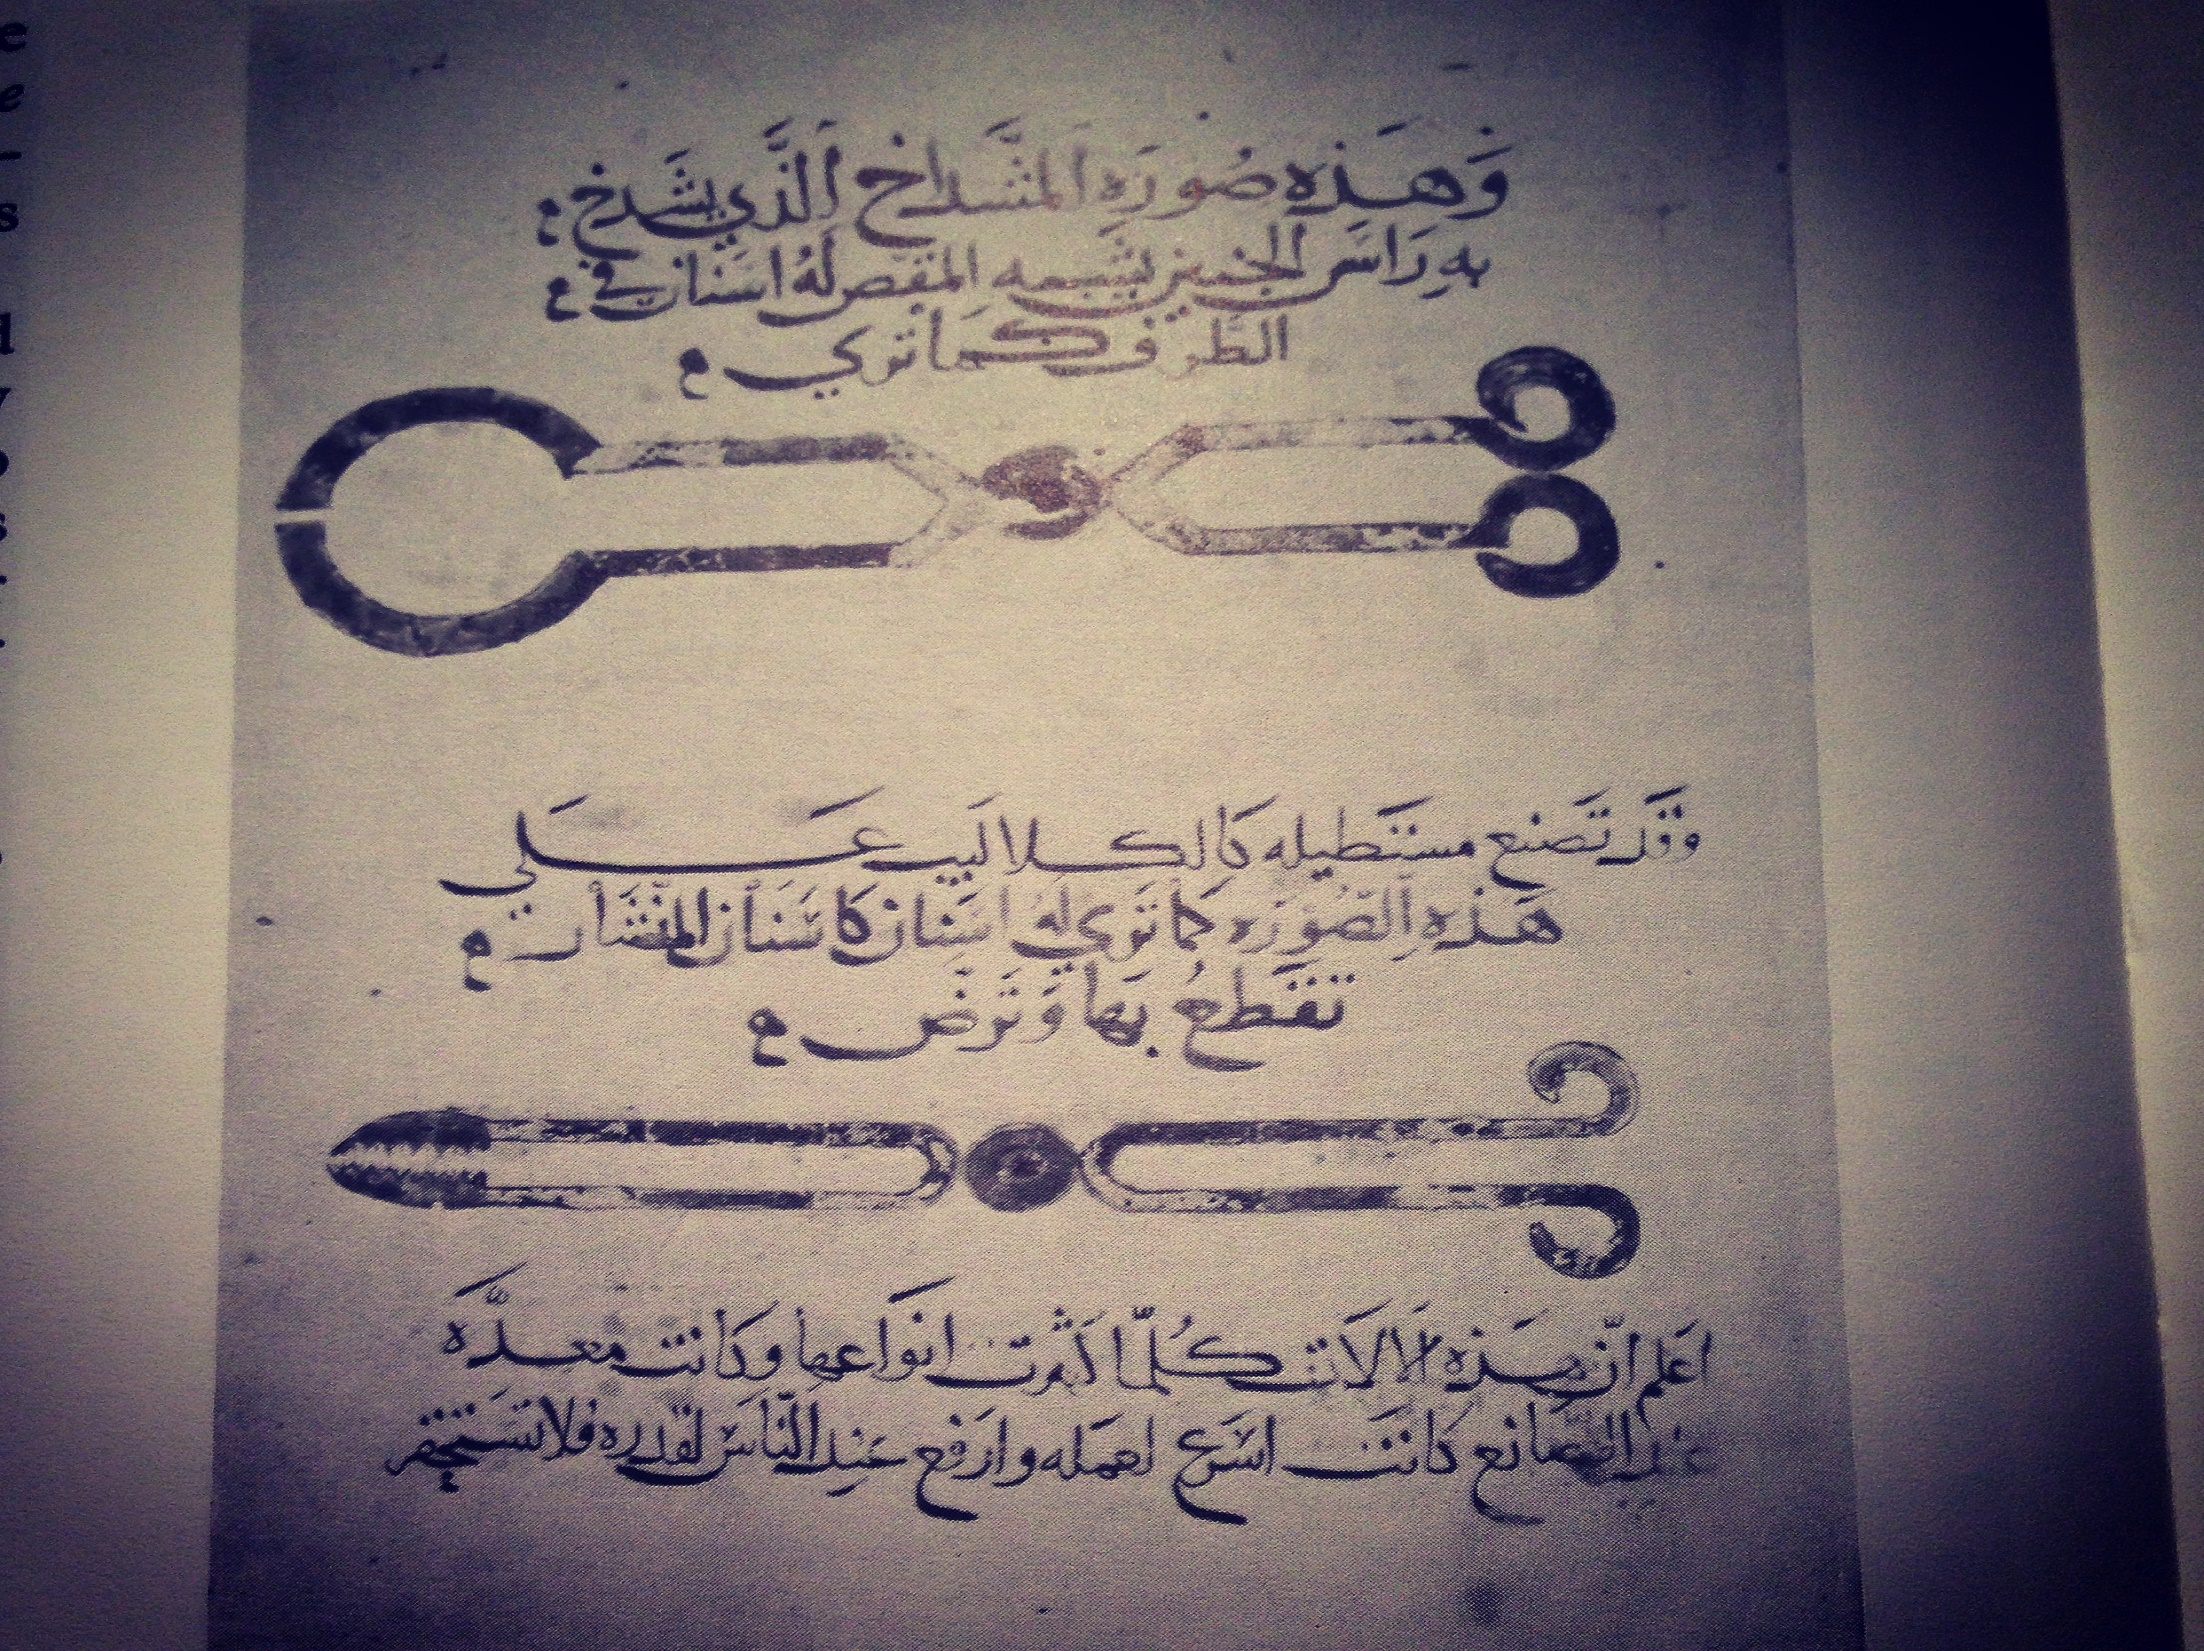 وَهَذِه صُورَه المشَّداخ الَّذي يشَدخ
بهِ رَاسَ الجنين يشبه المقص لهُ اسَنان في
الطرف كما تري
وقَد تَصنع مستَطيله كَالكلاليب عَلي
هَذهِ الصُّورَه كما تَري لهُ اسنَان كاسنَان المنشَار
تقَطعُ بهَا وَتَرضّ
اعَلم انّ هَذه الالاَت كُلّما كَثُرت انوَاعها وكَانت معَدَّه
عند الصَانع كَانت اسَرع لعمَله وارَفع عَند النّاسَ لقَدره فلا تسَتحقر